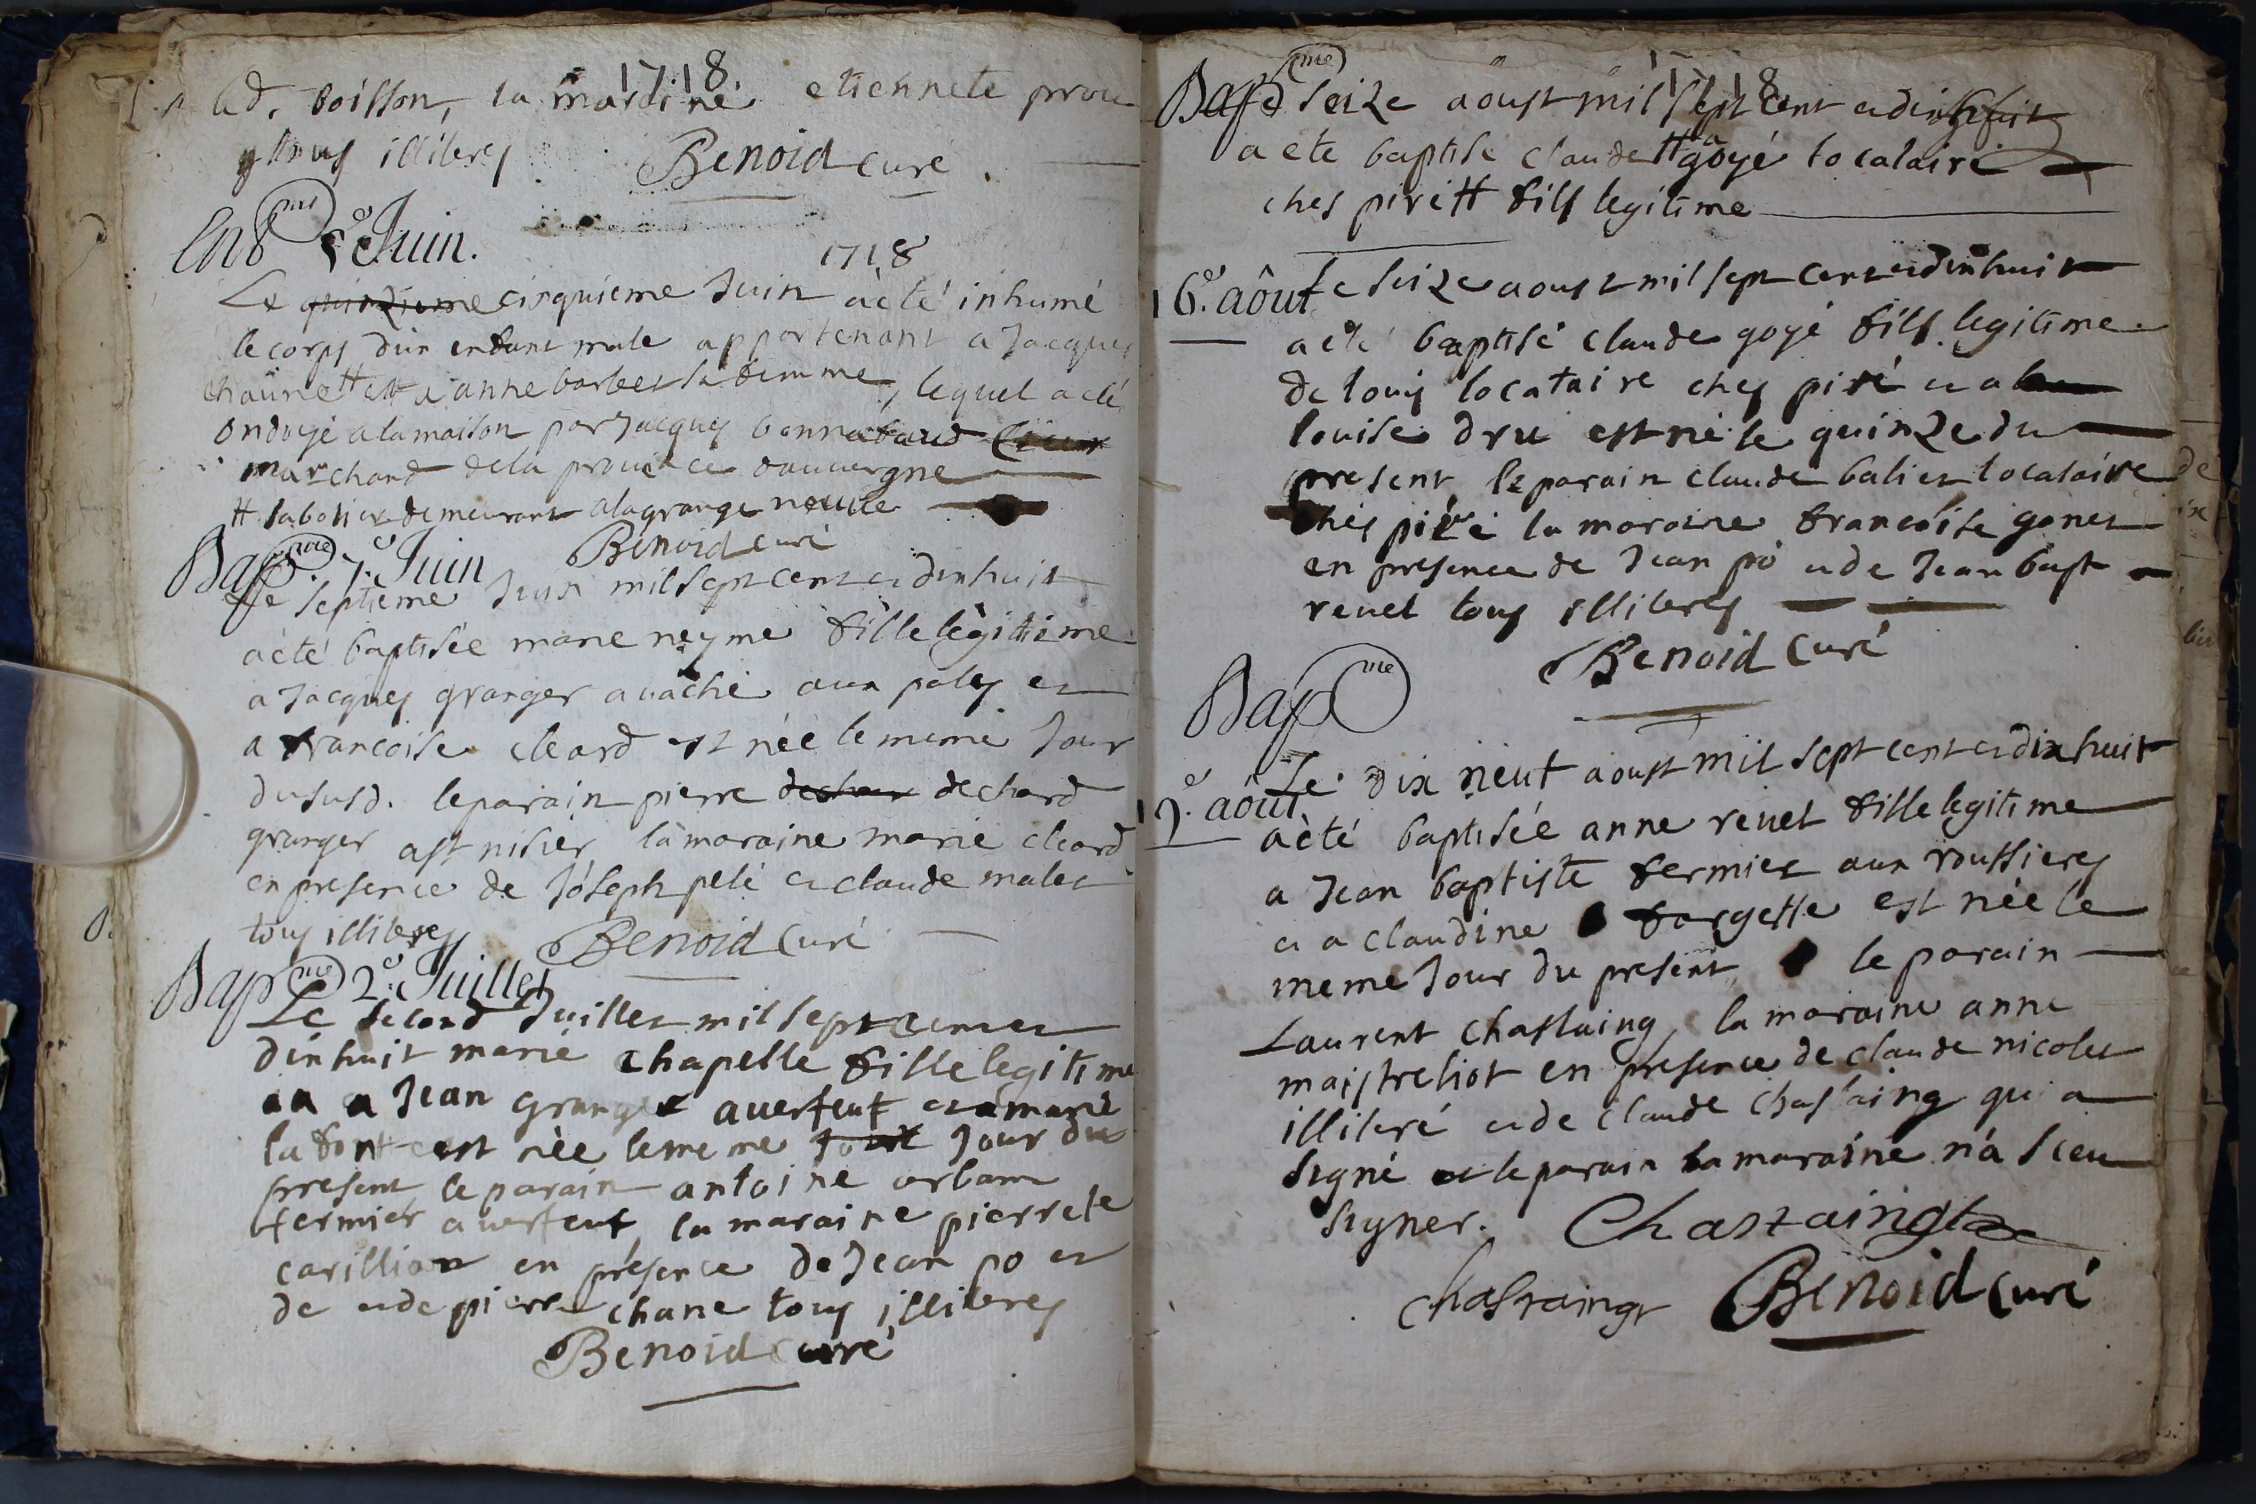 1718
led. boisson, la maraine etiennete prou
tous illiteres Benoid curé
1718
Ent 5e Juin.
Le quinzieme cinquieme Juin a été inhumé
le corps d'un enfant male appartenant a Jacques
chaune H et a anne barbet sa femme, lequel a eté
ondoyé a la maison par Jacques bonnabaud
marchand de la province dauvergne
H sabotier demeurant a la grange neuve
Benoid curé
Bapme 7e Juin
Le septieme Juin mil sept cent et dixhuit
a eté baptisée marie neyme fille legitime
a Jacques granger a vaché aux pales et
a francoise cleard est née le meme Jour
du susd. le parain pierre dechard
granger a st nisier la maraine marie cleard
en presence de Joseph pelé et claude malet
tous illiteres Benoid curé
Bapme 2e Juillet
Le second Juillet mil sept cent et
dixhuit marie chapelle fille legitime
a Jean granger a verfeut et a marie
lafont est née le meme Jour du
present le parain antoine
fermier a verfeut, la maraine pierrete
carillion en présence de Jean po et
de et de pierre chane tous illiteres
Benoid curé
1718
Bapme
Le seize aoust mil sept cent et dixhuit
a eté baptisé claude H goyé locataire
ches piré H fils legitime
16e aôut
Le seize aoust mil sept cent et dixhuit
a eté baptisé claude goyé fils legitime
de louis locataire ches piré et a
louise dru est né le quinze du
present, le parain claude balier locataire
ches piré la maraine francoise gonet
en presence de Jean po et de Jean bapt
revel tous illiteres
Benoid curé
Bapme
19e aôut
Le dix neuf aoust mil sept cent et dixhuit
a eté baptisée anne revel fille legitime
a Jean baptiste fermier aux roussieres
et a claudine fargette est née le
meme Jour du present le parain
Laurent chastaing, la maraine anne
maistreliot en presence de claude nicolet
illiteré et de claude chastaing qui a
signé et le parain la maraine n'a sceu
signer. Chastaingt
chastaingt Benoid curé